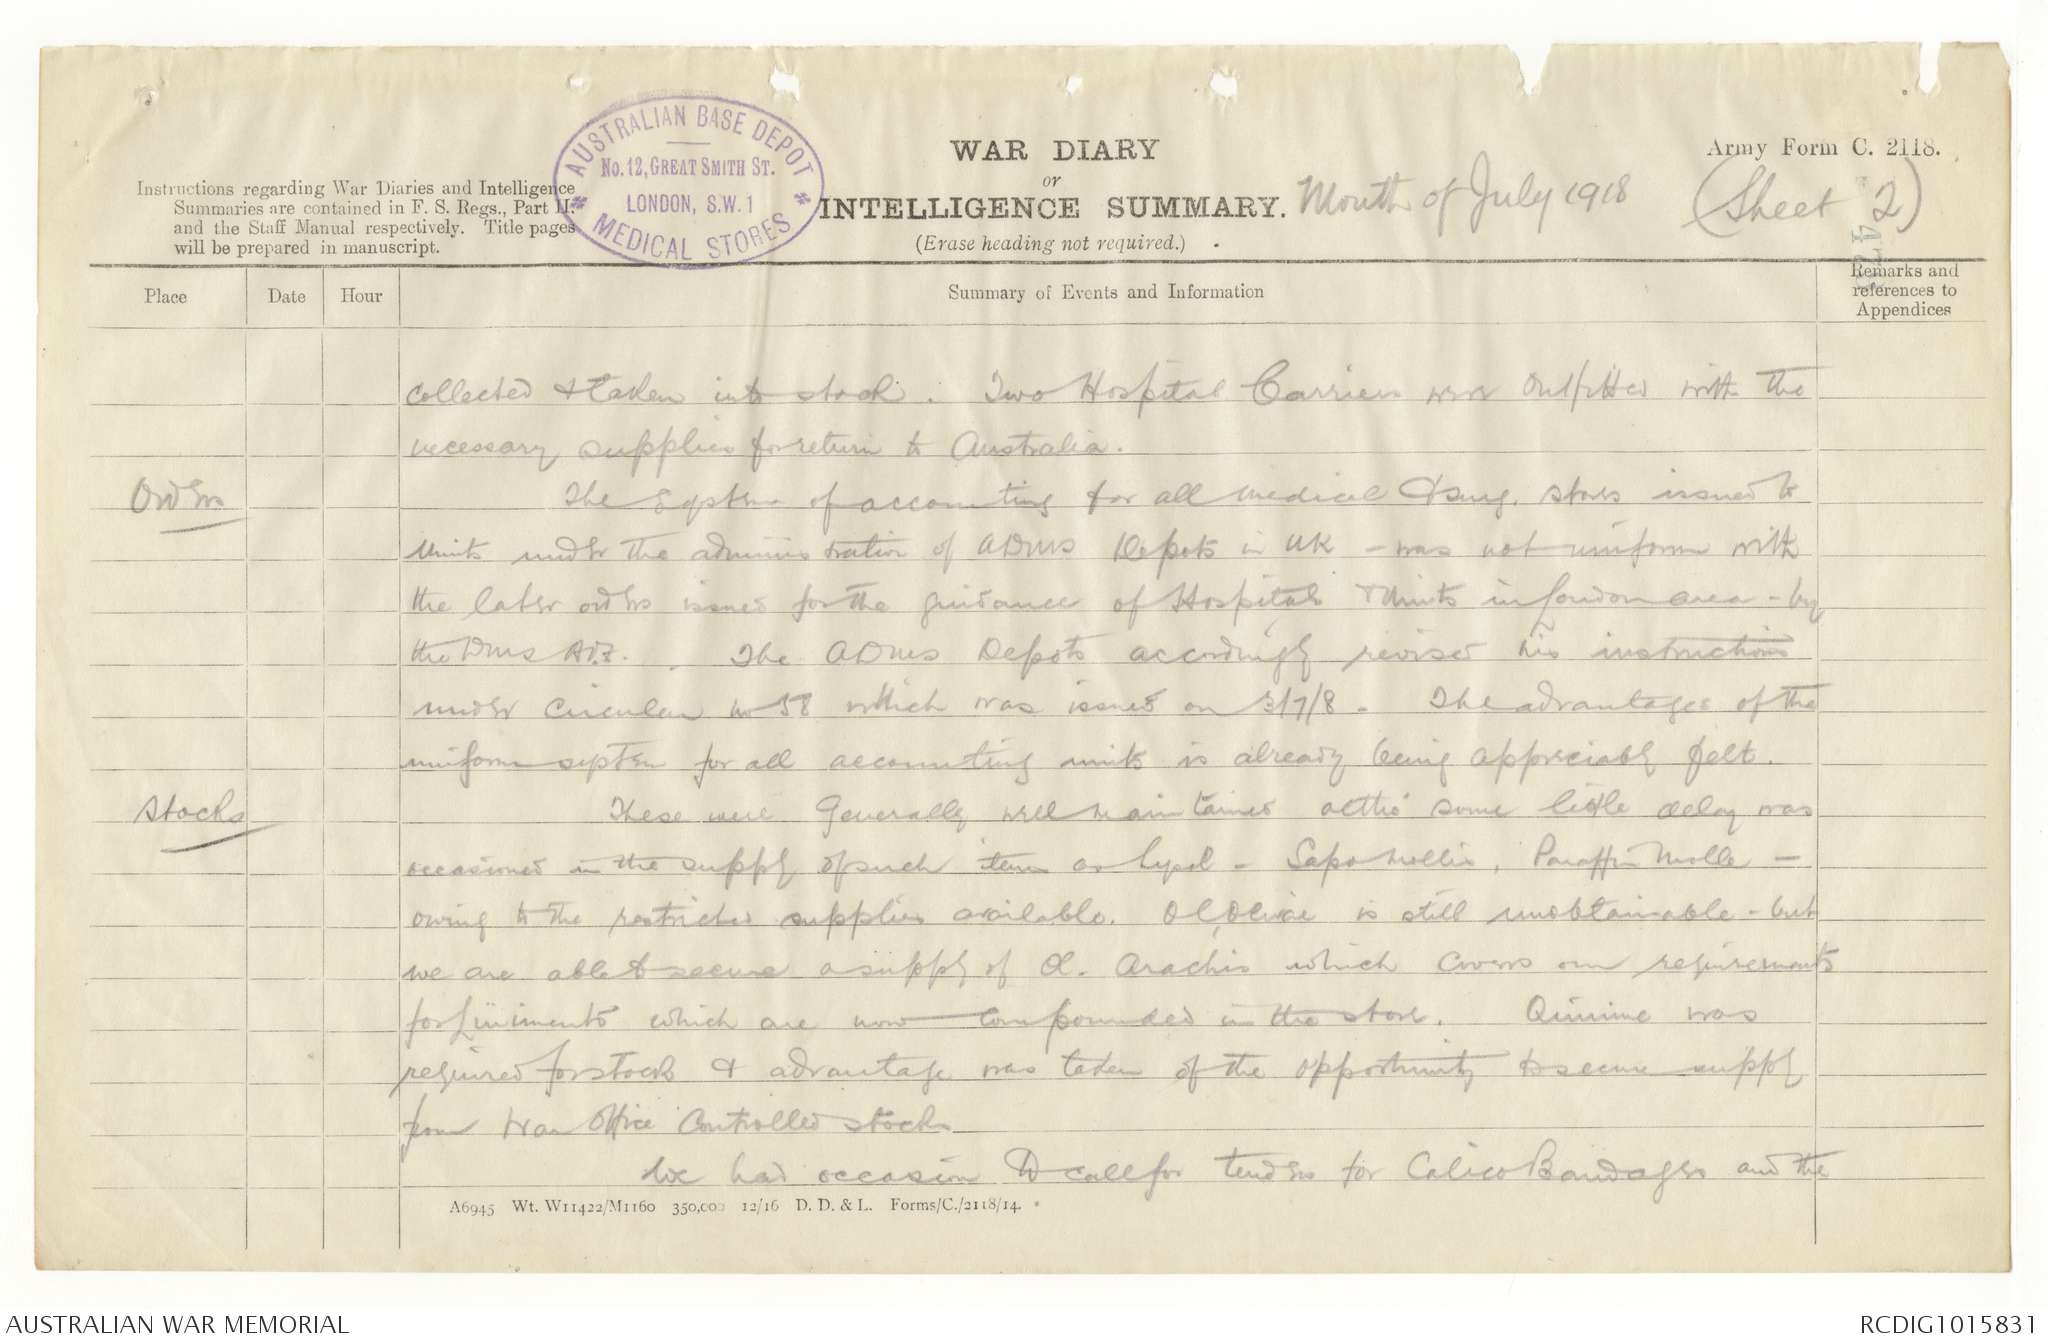 AUSTRALIAN BASE DEPOT
No. 12, GREAT SMITH ST.
LONDON, S.W.1
MEDICAL STORES
WAR DIARY
or
INTELLIGENCE SUMMARY.
(Erase heading not required.)
Month of July 1918
Army Form C. 2118.
(Sheet 2)
Instructions regarding War Diaries and Intelligence
Summaries are contained in F. S. Regs., Part II.
and the Staff Manual respectively. Title pages
will be prepared in manuscript.
Place
Date
Hour
Summary of Events and Information
Remarks and
references to
Appendices
collected & taken into stock. Two Hospital Carriers were outfitted with the
necessary supplies for return to Australia.
Orders
The system of accounting for all medical & surg. stores issued to
Units under the administration of ADMS Depots in UK - was not uniform with
the later orders issued for the guidance of Hospitals & Units in London area - by
the DMS AIF. The ADMS Depots accordingly revised his instructions
under Circular No 58 which was issued on 3/7/8. The advantages of the
uniform system for all accounting units is already being appreciably felt.
Stocks
These were generally well maintained altho' some little delay was
occasioned in the supply of such items as Lysol - Sapo Mollis, Paraffin Molle -
owing to the restricted supplies available. Ol. Olivae is still unobtainable - but
we are able to secure a supply of Ol. Arachis which covers our requirements
for Liniments which are now compounded in the store. Quinine was
required for stock & advantage was taken of the opportunity to secure supply
from War Office Controlled stocks
We had occasion to call for tenders for Calico Bandages and the
A6945 Wt. W11422/M1160 350,000 12/16 D. D. & L. Forms/C./2118/14.
AUSTRALIAN WAR MEMORIAL
RCDIG1015831